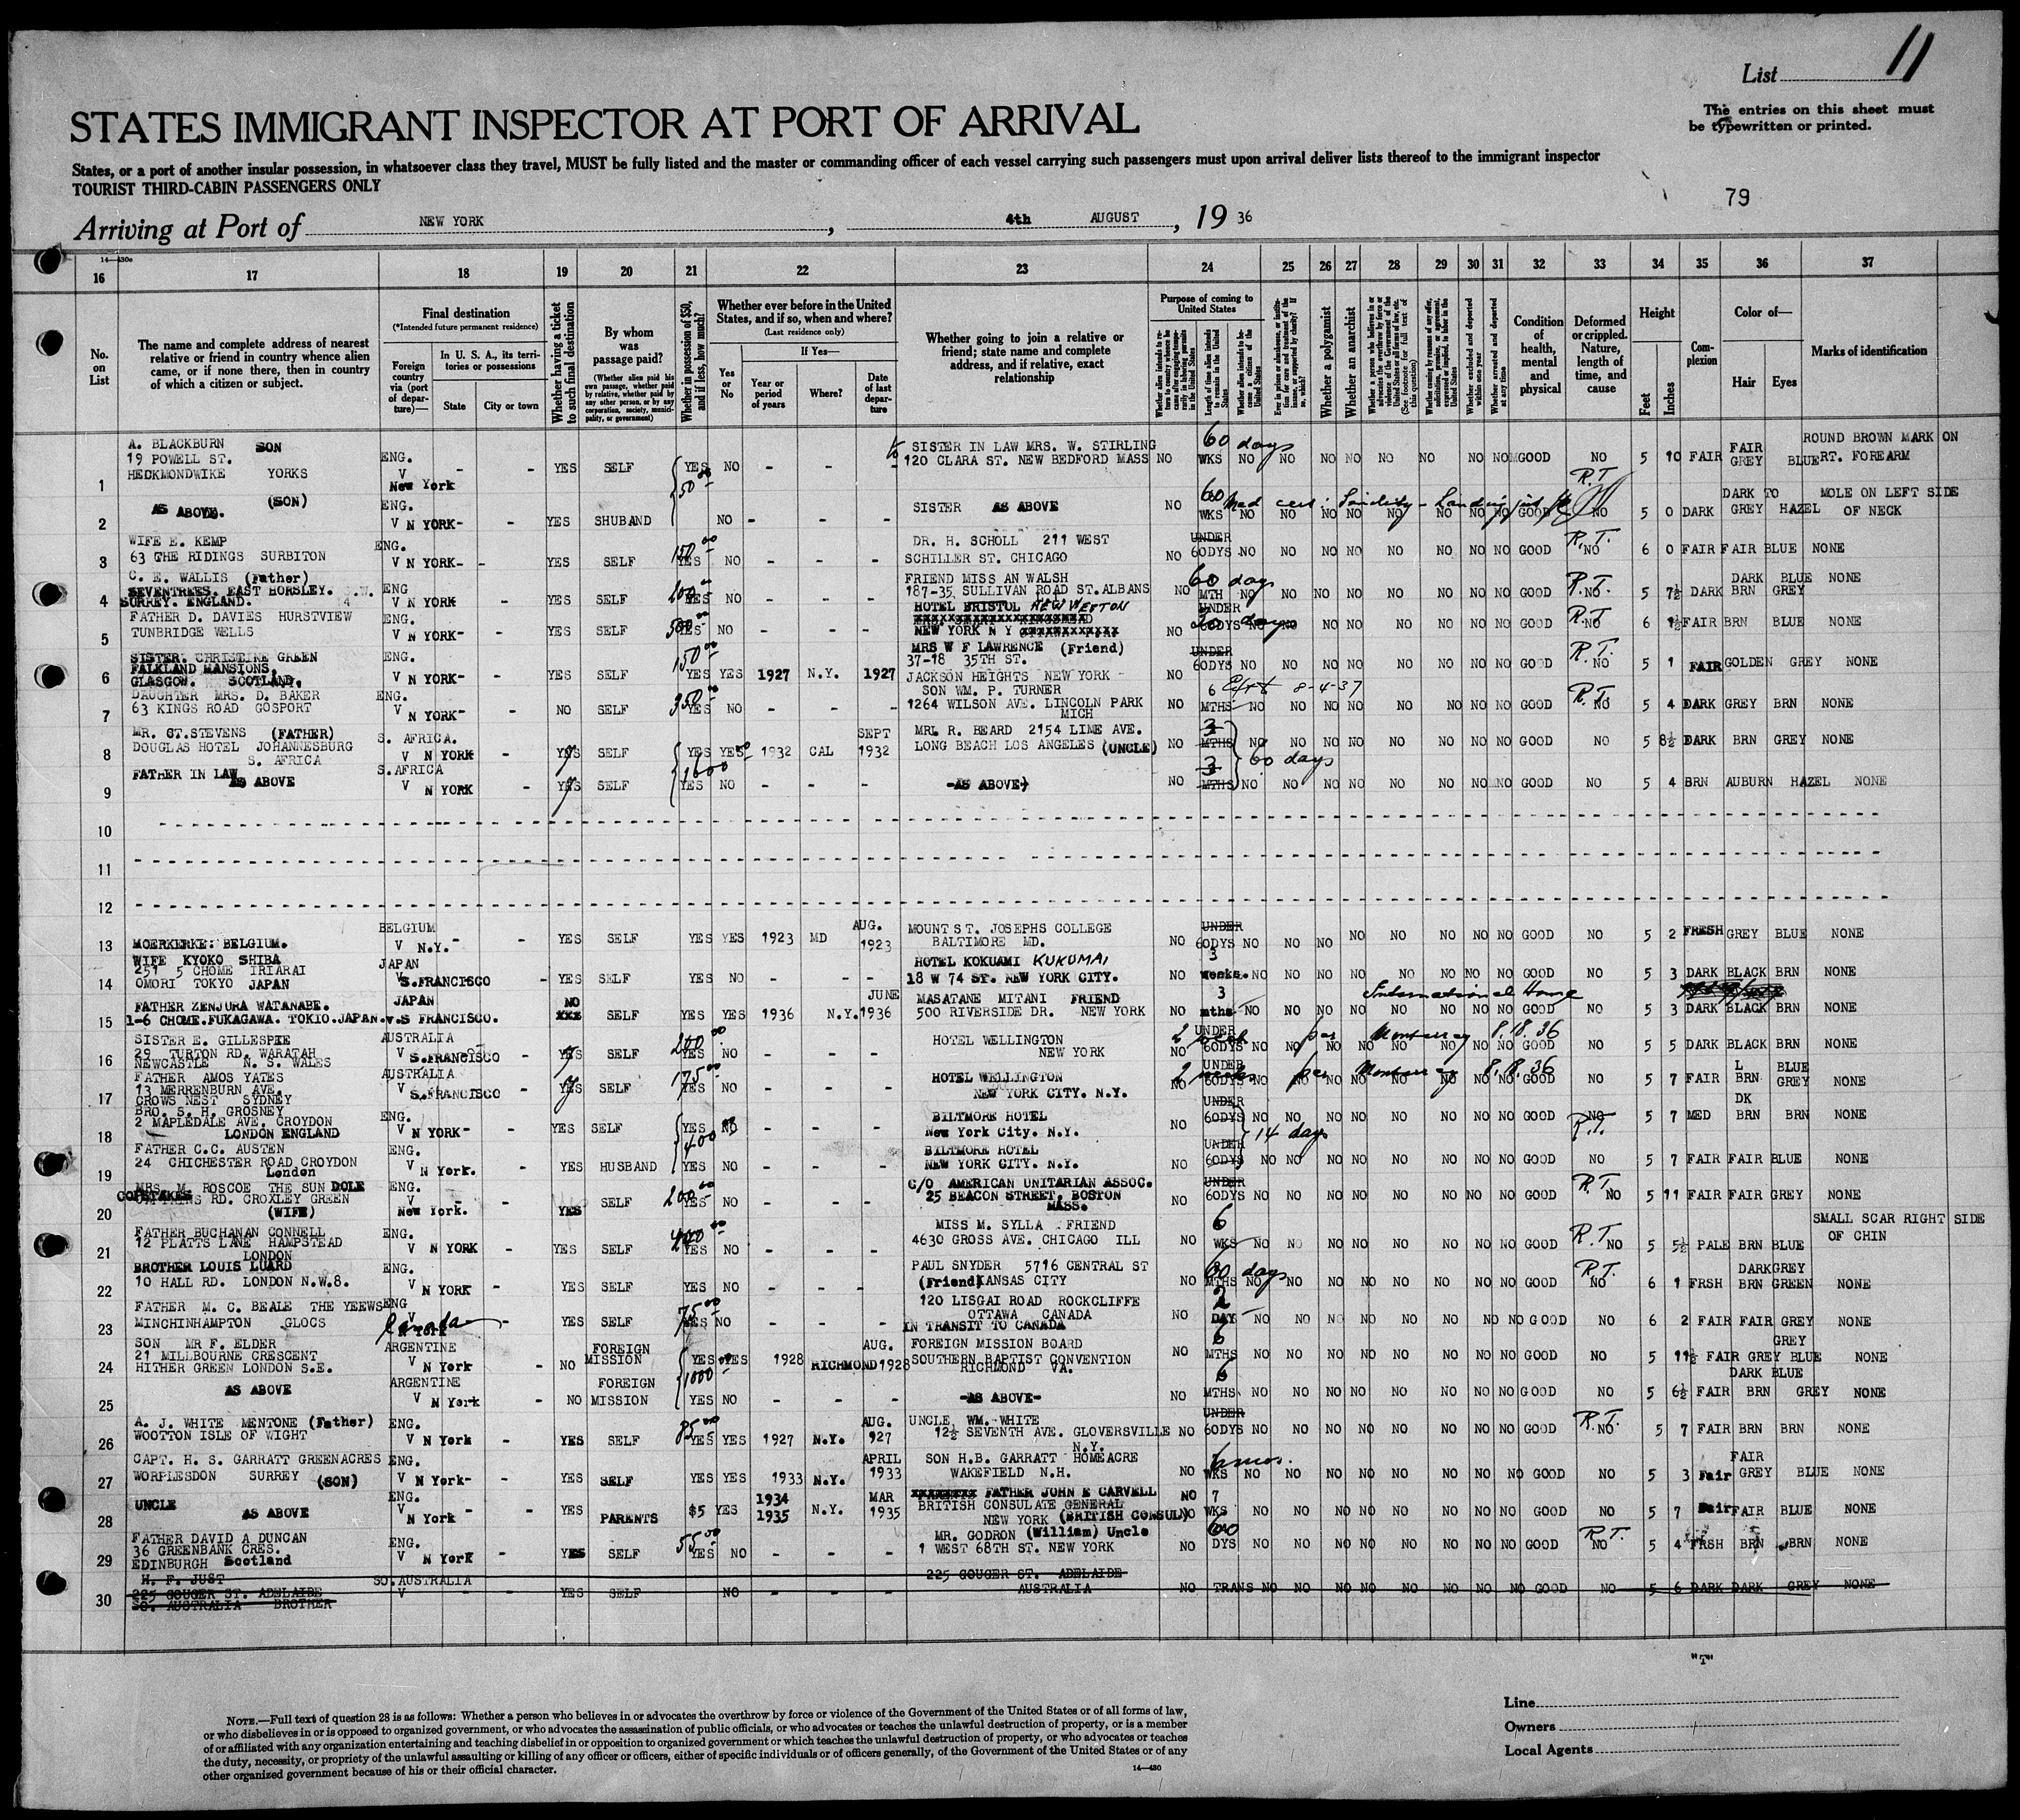 List 11
STATES IMMIGRANT INSPECTOR AT PORT OF ARRIVAL
The entries on this sheet must
be typewritten or printed.
States, or a port of another insular possession, in whatsoever class they travel, MUST be fully listed and the master or commanding officer of each vessel carrying such passengers must upon arrival deliver lists thereof to the immigrant inspector
TOURIST THIRD-CABIN PASSENGERS ONLY
79
Arriving at Port of NEW YORK, 4th AUGUST, 19 36
14—430e
16 17 18 19 20 21 22 23 24 25 26 27 28 29 30 31 32 33 34 35 36 37
No. on List
The name and complete address of nearest relative or friend in country whence alien came, or if none there, then in country of which a citizen or subject.
Final destination
(*Intended future permanent residence)
Foreign country via (port of departure)—
In U. S. A., its territories or possessions
State
City or town
Whether having a ticket to such final destination
By whom was passage paid?
(Whether alien paid his own passage, whether paid by relative, whether paid by any other person, or by any corporation, society, municipality, or government)
Whether in possession of $50, and if less, how much?
Whether ever before in the United States, and if so, when and where?
(Last residence only)
Yes or No
If Yes—
Year or period of years
Where?
Date of last departure
Whether going to join a relative or friend; state name and complete address, and if relative, exact relationship
Purpose of coming to United States
Length of time alien intends to remain in the United States
Whether alien intends to become a citizen of the United States
Whether a polygamist
Whether an anarchist
Whether excluded and deported within one year
Whether arrested and deported at any time
Condition of health, mental and physical
Deformed or crippled. Nature, length of time, and cause
Height
Feet
Inches
Complexion
Color of—
Hair
Eyes
Marks of identification
1 A. BLACKBURN SON 19 POWELL ST. HECKMONDWIKE YORKS ENG. V New York - - YES SELF YES 50 00 NO - - - SISTER IN LAW MRS. W. STIRLING 120 CLARA ST. NEW BEDFORD MASS NO 60 days WKS NO NO NO NO NO NO NO NO GOOD NO 5 10 FAIR FAIR GREY BLUE ROUND BROWN MARK ON RT. FOREARM
2 AS ABOVE. (SON) ENG. V N YORK - - YES SHUBAND NO - - - SISTER AS ABOVE NO 60 WKS NO NO NO NO NO NO NO NO GOOD R.T. NO 5 0 DARK DARK TO GREY HAZEL MOLE ON LEFT SIDE OF NECK
3 WIFE E. KEMP 63 THE RIDINGS SURBITON ENG. V N YORK - - YES SELF 150 00 YES NO - - - DR. H. SCHOLL 211 WEST SCHILLER ST. CHICAGO NO UNDER 60DYS NO NO NO NO NO NO NO NO GOOD R.T. NO 6 0 FAIR FAIR BLUE NONE
4 C. E. WALLIS (Father) SEVENTREES. EAST HORSLEY. SURREY. ENGLAND. ENG V N YORK - YES SELF YES NO - - - FRIEND MISS AN WALSH 187-35 SULLIVAN ROAD ST.ALBANS NO 60 days MTH NO NO NO NO NO NO NO NO GOOD R.T. NO 5 7½ DARK DARK BRN BLUE GREY NONE
5 FATHER D. DAVIES HURSTVIEW TUNBRIDGE WELLS ENG. V N YORK - - YES SELF 500 00 YES NO - - - HOTEL BRISTOL NEW WESTON NEW YORK N Y NO UNDER 60DYS days NO NO NO NO NO NO NO GOOD R.T. NO 6 1½ FAIR BRN BLUE NONE
6 SISTER. CHRISTINE GREEN FALKLAND MANSIONS, GLASGOW. SCOTLAND. ENG. V N YORK - - YES SELF 150 00 YES YES 1927 N.Y. 1927 MRS W F LAWRENCE (Friend) 37-18 35TH ST. JACKSON HEIGHTS NEW YORK NO UNDER 60DYS NO NO NO NO NO NO NO NO GOOD R.T. NO 5 1 FAIR GOLDEN GREY NONE
7 DAUGHTER MRS. D. BAKER 63 KINGS ROAD GOSPORT ENG. V N YORK - - NO SELF 350 00 YES NO - - - SON WM. P. TURNER 1264 WILSON AVE. LINCOLN PARK MICH NO 6 MTHS 8-4-37 NO NO NO NO NO NO NO NO GOOD R.T. NO 5 4 DARK GREY BRN NONE
8 MR. ST.STEVENS (FATHER) DOUGLAS HOTEL JOHANNESBURG S. AFRICA S. AFRICA. V N YORK - YES SELF YES YES 1932 CAL SEPT 1932 MRL R. BEARD 2154 LIME AVE. LONG BEACH LOS ANGELES (UNCLE) NO 3 MTHS 60 days NO NO NO NO NO NO NO NO GOOD NO 5 8½ DARK BRN GREY NONE
9 FATHER IN LAW AS ABOVE S.AFRICA V N YORK - YES SELF 1600 YES NO - - - -AS ABOVE- NO 3 MTHS NO NO NO NO NO NO NO NO GOOD NO 5 4 BRN AUBURN HAZEL NONE
10
11
12
13 MOERKERKE: BELGIUM. BELGIUM V N.Y. - - YES SELF YES YES 1923 MD AUG. 1923 MOUNT ST. JOSEPHS COLLEGE BALTIMORE MD. NO UNDER 60DYS NO NO NO NO NO NO NO NO GOOD NO 5 2 FRESH GREY BLUE NONE
14 WIFE KYOKO SHIBA 251 5 CHOME IRIARAI OMORI TOKYO JAPAN JAPAN V S.FRANCISCO - YES SELF YES NO - - - HOTEL KOKUAMI KUKUMAI 18 W 74 ST. NEW YORK CITY. NO 3 weeks. NO NO NO NO NO NO NO NO GOOD NO 5 3 DARK BLACK BRN NONE
15 FATHER ZENJURA WATANABE. 1-6 CHOME.FUKAGAWA. TOKIO.JAPAN. JAPAN v.S FRANCISCO. NO xxx SELF YES YES 1936 N.Y. JUNE 1936 MASATANE MITANI FRIEND 500 RIVERSIDE DR. NEW YORK International House NO 3 mths NO NO NO NO NO NO NO NO GOOD NO 5 3 DARK BLACK BRN NONE
16 SISTER E. GILLESPIE 29 TURTON RD. WARATAH NEWCASTLE N. S. WALES AUSTRALIA V S.FRANCISCO YES SELF 200 00 YES NO - - - HOTEL WELLINGTON NEW YORK 2 UNDER NO 60DYS NO per Monterey 8.18.36 NO NO NO NO NO NO GOOD NO 5 5 DARK BLACK BRN NONE
17 FATHER AMOS YATES 13 MERRENBURN AVE. CROWS NEST SYDNEY AUSTRALIA V S.FRANCISCO YES SELF 175 00 YES NO - - - HOTEL WELLINGTON NEW YORK CITY. N.Y. 2 weeks UNDER NO 60DYS per Monterey 8.18.36 NO NO NO NO NO NO GOOD NO 5 7 FAIR L BRN BLUE GREY NONE
18 BRO. S. H. GROSNEY 2 MAPLEDALE AVE. CROYDON LONDON ENGLAND ENG. V N YORK - - YES SELF YES NO - - - BILTMORE HOTEL New York City. N.Y. NO UNDER 60DYS 14 days NO NO NO NO NO NO NO NO GOOD NO R.T. 5 7 MED DK BRN BRN NONE
19 FATHER C.C. AUSTEN 24 CHICHESTER ROAD CROYDON London ENG. V N York. YES HUSBAND 400 YES NO - - - BILTMORE HOTEL NEW YORK CITY. N.Y. NO UNDER 60DYS NO NO NO NO NO NO NO NO GOOD NO 5 7 FAIR FAIR BLUE NONE
20 MRS. M. ROSCOE THE SUN DOLE COPSTAKES RD. CROXLEY GREEN (WIFE) ENG. V New York. - YES SELF 200 00 YES NO - - - C/O AMERICAN UNITARIAN ASSOC. 25 BEACON STREET, BOSTON MASS. NO UNDER 60DYS NO NO NO NO NO NO NO NO GOOD R.T. NO 5 11 FAIR FAIR GREY NONE
21 FATHER BUCHANAN CONNELL 12 PLATTS LANE HAMPSTEAD LONDON ENG. V N YORK - YES SELF 400 00 YES NO - - - MISS M. SYLLA FRIEND 4630 GROSS AVE. CHICAGO ILL NO 6 WKS NO NO NO NO NO NO NO NO GOOD R.T. NO 5 5½ PALE BRN BLUE SMALL SCAR RIGHT SIDE OF CHIN
22 BROTHER LOUIS LUARD 10 HALL RD. LONDON N.W.8. ENG. V N YORK - YES SELF YES NO - - - PAUL SNYDER 5716 CENTRAL ST (Friend) KANSAS CITY NO 30 days MTHS NO NO NO NO NO NO NO NO GOOD R.T. NO 6 1 FRSH DARK BRN GREY GREEN NONE
23 FATHER M. C. BEALE THE YEEWS MINCHINHAMPTON GLOCS ENG V N York Canada - YES SELF 75 00 YES NO - - - 120 LISGAI ROAD ROCKCLIFFE OTTAWA CANADA IN TRANSIT TO CANADA NO 2 DAY - NO NO NO NO NO NO NO GOOD NO 6 2 FAIR FAIR GREY NONE
24 SON MR F. ELDER 21 MILLBOURNE CRESCENT HITHER GREEN LONDON S.E. ARGENTINE V N York - NO FOREIGN MISSION YES YES 1928 RICHMOND AUG. 1928 FOREIGN MISSION BOARD SOUTHERN BAPTIST CONVENTION RICHMOND VA. NO 6 MTHS NO NO NO NO NO NO NO NO GOOD NO 5 11½ FAIR GREY GREY BLUE NONE
25 AS ABOVE ARGENTINE V N York - NO FOREIGN MISSION 1000 YES NO - - - -AS ABOVE- NO 6 MTHS NO NO NO NO NO NO NO NO GOOD NO 5 6½ FAIR DARK BRN BLUE GREY NONE
26 A. J. WHITE MENTONE (Father) WOOTTON ISLE OF WIGHT ENG. V N York - YES SELF 85 00 YES YES 1927 N.Y. AUG. 927 UNCLE WM. WHITE 12½ SEVENTH AVE. GLOVERSVILLE N.Y. NO UNDER 60DYS NO NO NO NO NO NO NO NO GOOD R.T. NO 5 7 FAIR BRN BRN NONE
27 CAPT. H. S. GARRATT GREENACRES WORPLESDON SURREY (SON) ENG. V N York - - YES SELF YES YES 1933 N.Y. APRIL 1933 SON H.B. GARRATT HOMEACRE WAKEFIELD N.H. NO 6 mos. WKS NO NO NO NO NO NO NO NO GOOD NO 5 3 Fair FAIR GREY BLUE NONE
28 UNCLE AS ABOVE ENG. V N York - YES PARENTS $5 YES 1934 1935 N.Y. MAR 1935 FATHER JOHN E CARVELL BRITISH CONSULATE GENERAL NEW YORK (BRITISH CONSUL) NO 7 WKS NO NO NO NO NO NO NO NO GOOD NO 5 7 Fair FAIR BLUE NONE
29 FATHER DAVID A DUNCAN 36 GREENBANK CRES. EDINBURGH Scotland ENG. V N York - YES SELF 55 00 YES NO - - - MR. GODRON (William) Uncle 1 WEST 68TH ST. NEW YORK NO 60 DYS NO NO NO NO NO NO NO NO GOOD R.T. NO 5 4 FRSH BRN BRN NONE
30 H. F. JUST 225 GOUGER ST. ADELAIDE SO. AUSTRALIA BROTHER SO.AUSTRALIA V - YES SELF NO - - - 225 GOUGER ST. ADELAIDE AUSTRALIA NO TRANS NO NO NO NO NO NO NO NO GOOD NO 5 6 DARK DARK GREY NONE
"T"
NOTE.—Full text of question 28 is as follows: Whether a person who believes in or advocates the overthrow by force or violence of the Government of the United States or of all forms of law,
or who disbelieves in or is opposed to organized government, or who advocates the assassination of public officials, or who advocates or teaches the unlawful destruction of property, or is a member
of or affiliated with any organization entertaining and teaching disbelief in or opposition to organized government or which teaches the unlawful destruction of property, or who advocates or teaches
the duty, necessity, or propriety of the unlawful assaulting or killing of any officer or officers, either of specific individuals or of officers generally, of the Government of the United States or of any
other organized government because of his or their official character.
14—430
Line
Owners
Local Agents